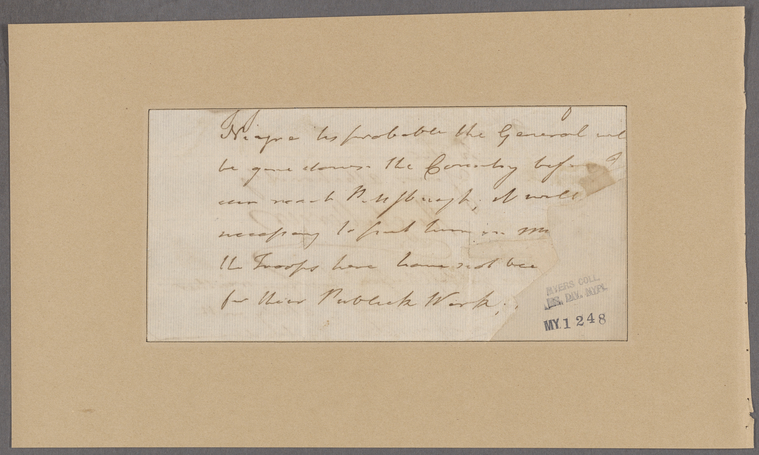 Niagra tis probable the General wil
be gone down the Country befo I
can reach Pittsburgh, it will
necessary to send him in
the Troops here have not bee
for their Publick Work.
MYERS COLL.
MSS. DIV. DEPT.
MY. 1248